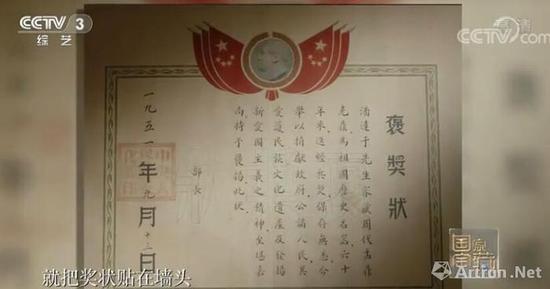 CCTV 3
综艺
CCTV.com
褒獎狀
潘達于先生家藏周代盂鼎
克鼎為祖國歷史名器六十
年來迭經兵燹保存無恙今
舉以捐獻政府公諸人民其
愛護民族文化遺產及發揚
新愛國主義之精神至堪嘉
尚特予褒揚此狀
部長
一九五一年九月十三日
就把奖状贴在墙头
国家宝藏
Artron.Net